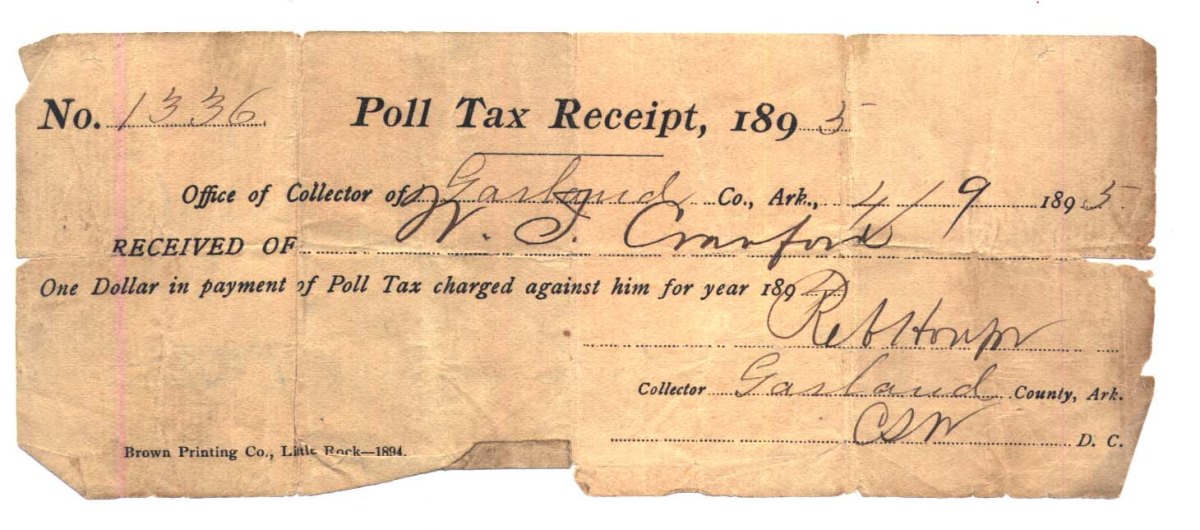 No. 1336 Poll Tax Receipt, 1895
Office of Collector of Garland Co., Ark., 4/9 1895
RECEIVED OF W. J. Crawford
One Dollar in payment of Poll Tax charged against him for year 189
Collector Garland County, Ark.
CSW D. C.
Brown Printing Co., Little Rock—1894.